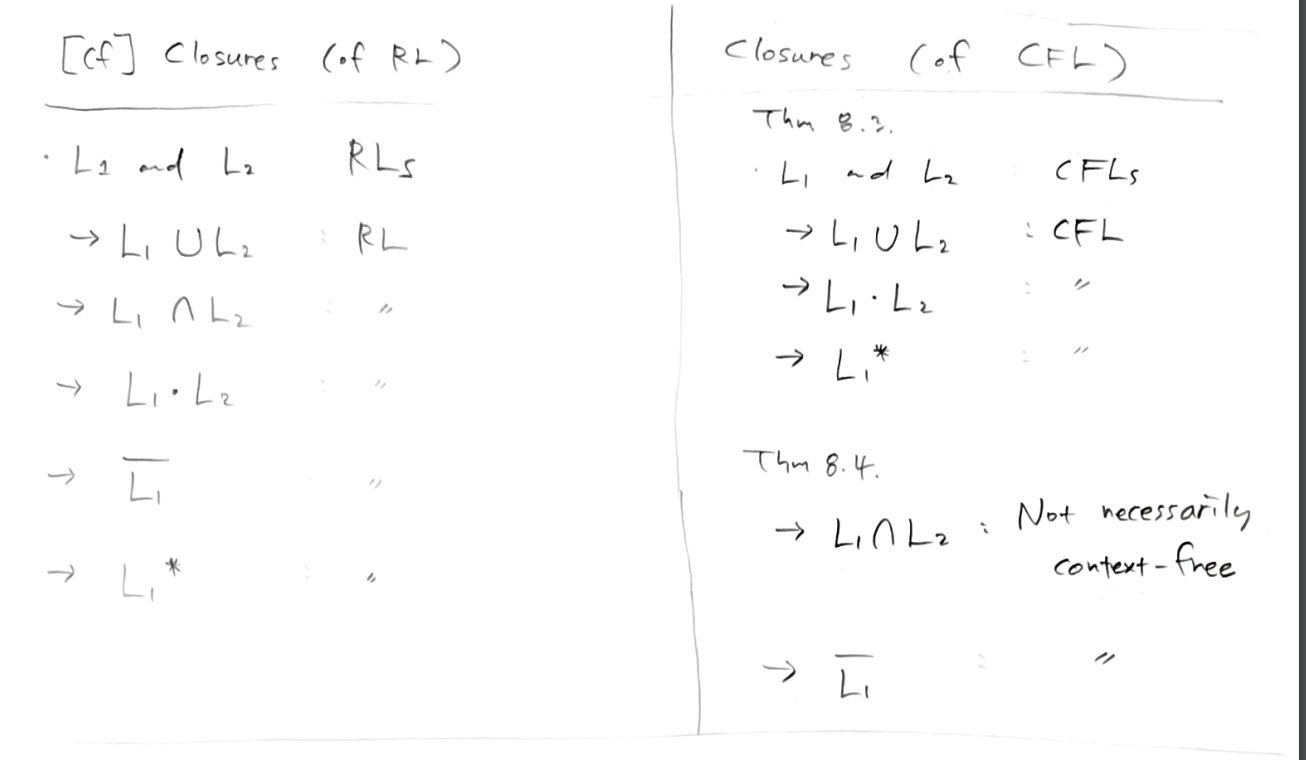 [cf] Closures (of RL)
· L1 and L2 RLs
→ L1 ∪ L2 : RL
→ L1 ∩ L2 : 〃
→ L1 · L2 : 〃
→ L̅1̅ 〃
→ L1* : 〃
Closures (of CFL)
Thm 8.3.
· L1 and L2 : CFLs
→ L1 ∪ L2 : CFL
→ L1 · L2 : 〃
→ L1* : 〃
Thm 8.4.
→ L1 ∩ L2 : Not necessarily
context-free
→ L̅1̅ : 〃